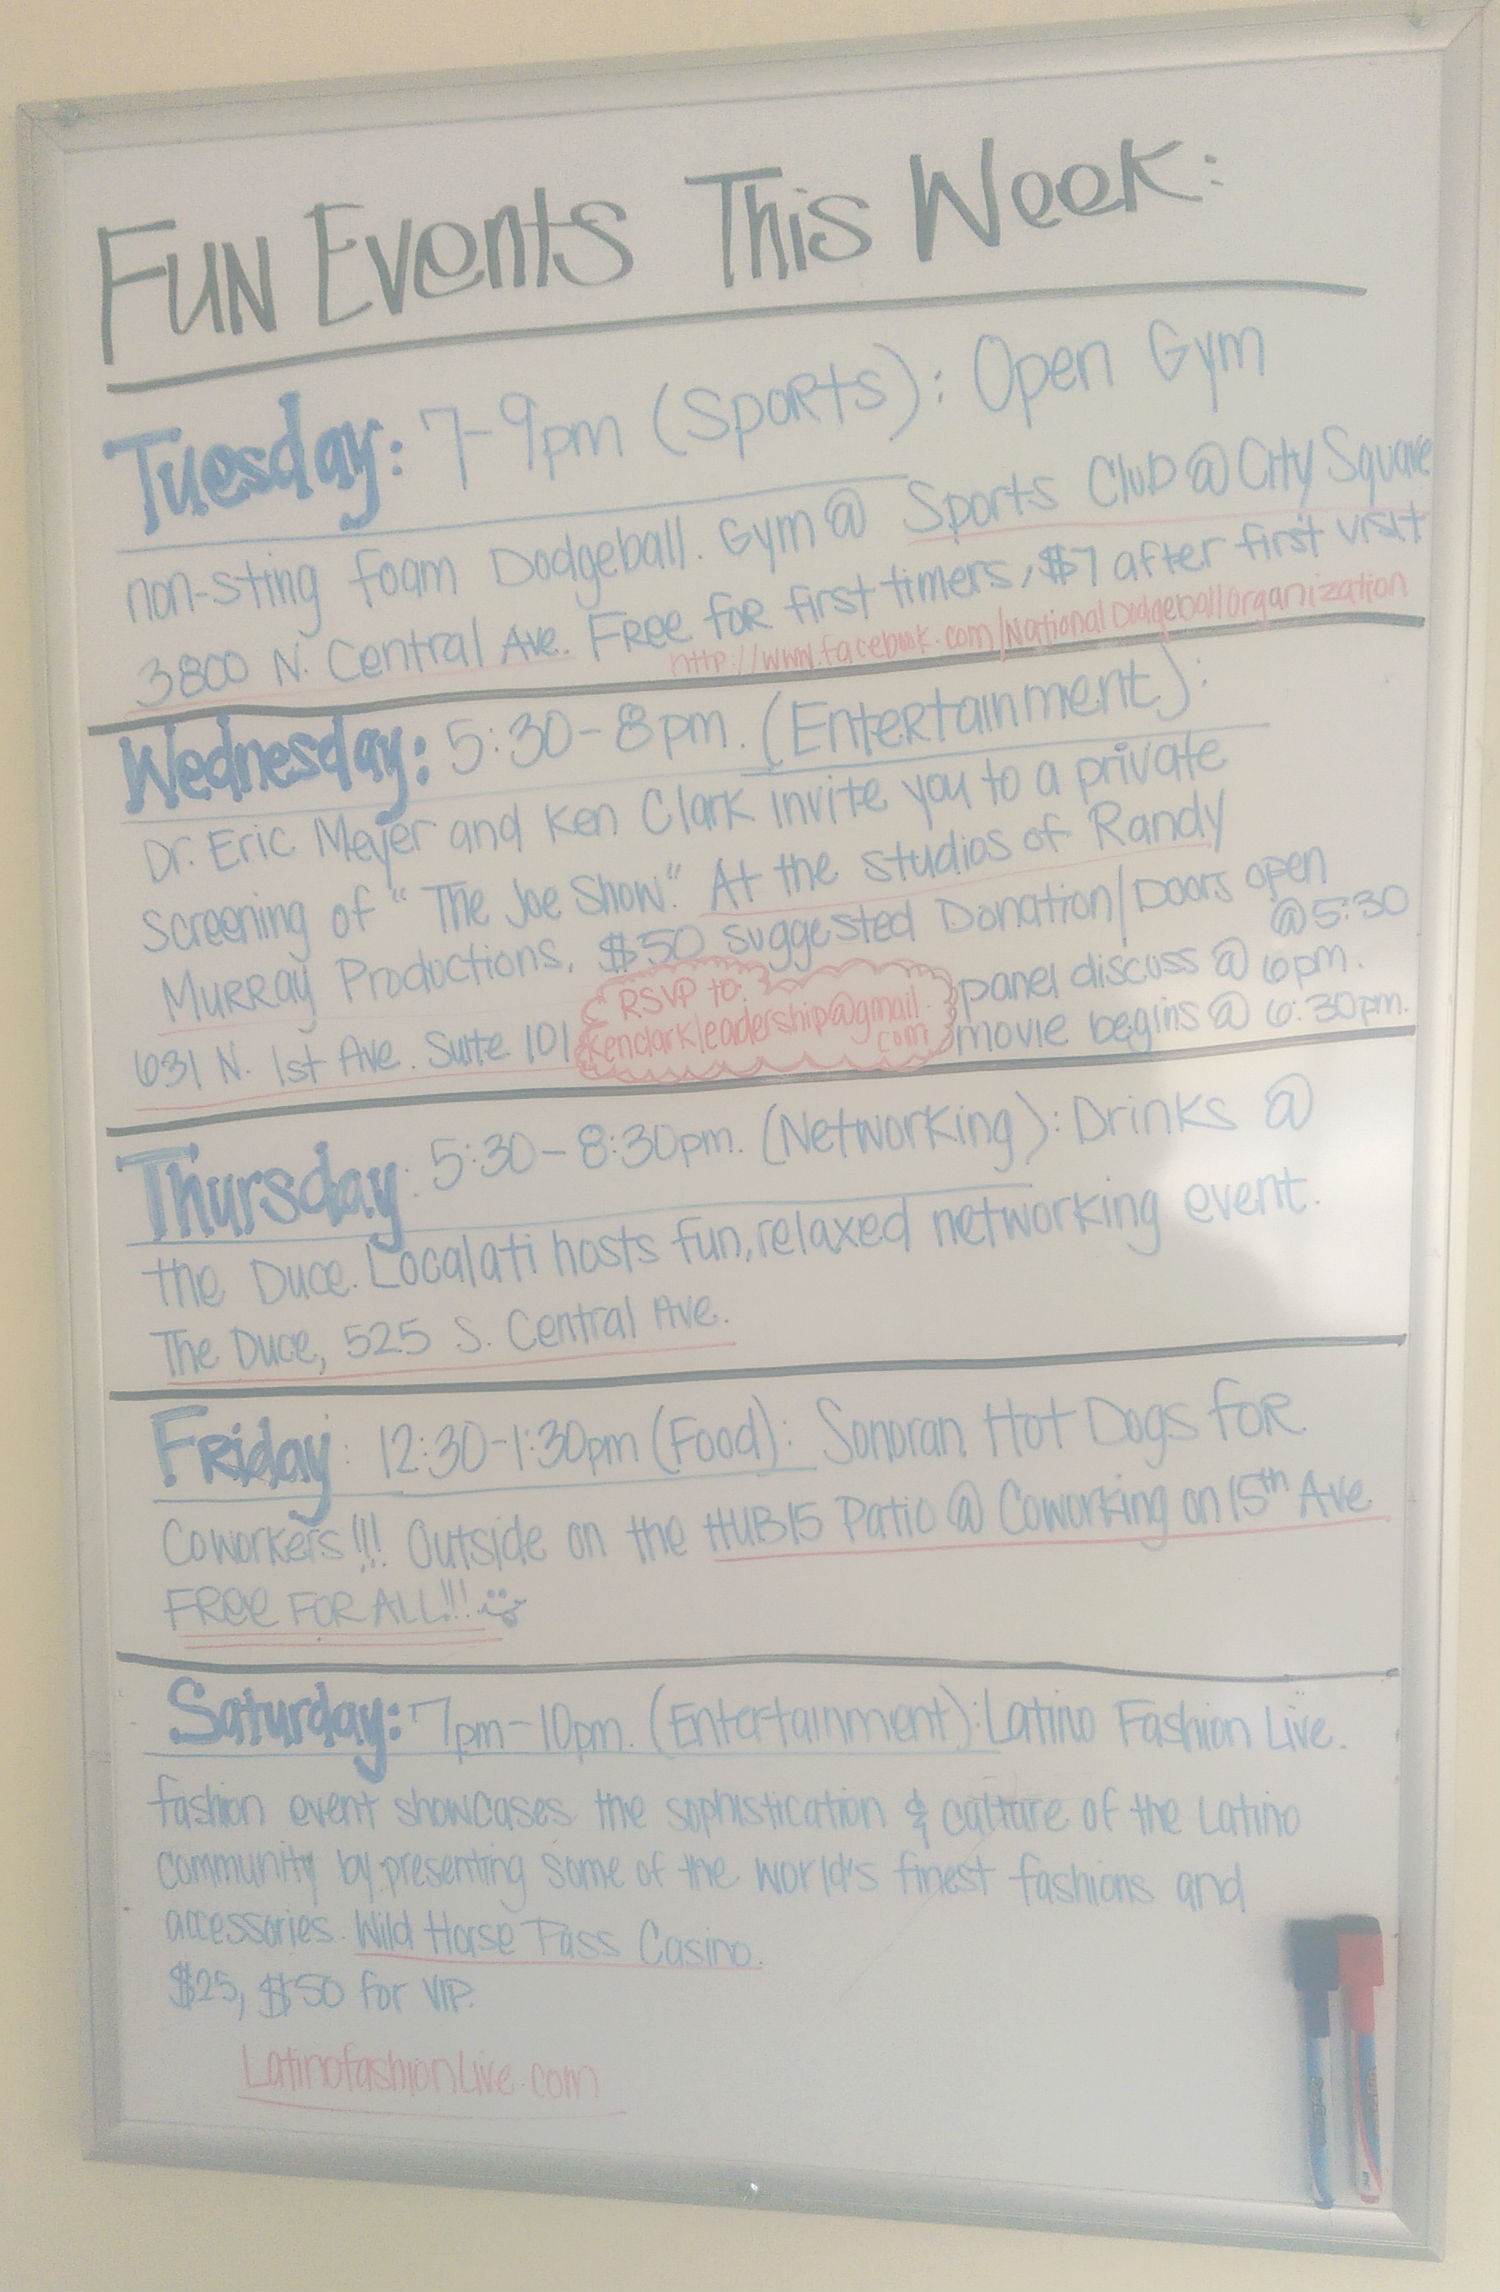 Fun Events This Week:
Tuesday: 7-9pm (Sports): Open Gym
non-sting foam Dodgeball. Gym @ Sports Club @ City Square
3800 N. Central Ave. Free for first timers, $7 after first visit
http://www.facebook.com/NationalDodgeballOrganization
Wednesday: 5:30-8pm. (Entertainment):
Dr. Eric Meyer and Ken Clark invite you to a private
Screening of "The Joe Show." At the studios of Randy
Murray Productions, $50 suggested Donation/Doors open
@5:30
631 N. 1st Ave. Suite 101
RSVP to:
kenclarkleadership@gmail.
com
panel discuss @ 6pm.
movie begins @ 6:30pm.
Thursday: 5:30-8:30pm. (Networking): Drinks @
the Duce. Localati hosts fun, relaxed networking event.
The Duce, 525 S. Central Ave.
Friday: 12:30-1:30pm (Food): Sonoran Hot Dogs for
Coworkers!!! Outside on the HUB15 Patio @ Coworking on 15th Ave
FREE FOR ALL!!!
Saturday: 7pm-10pm. (Entertainment): Latino Fashion Live.
fashion event showcases the sophistication & culture of the Latino
community by presenting some of the world's finest fashions and
accessories. Wild Horse Pass Casino.
$25, $50 for VIP.
LatinofashionLive.com